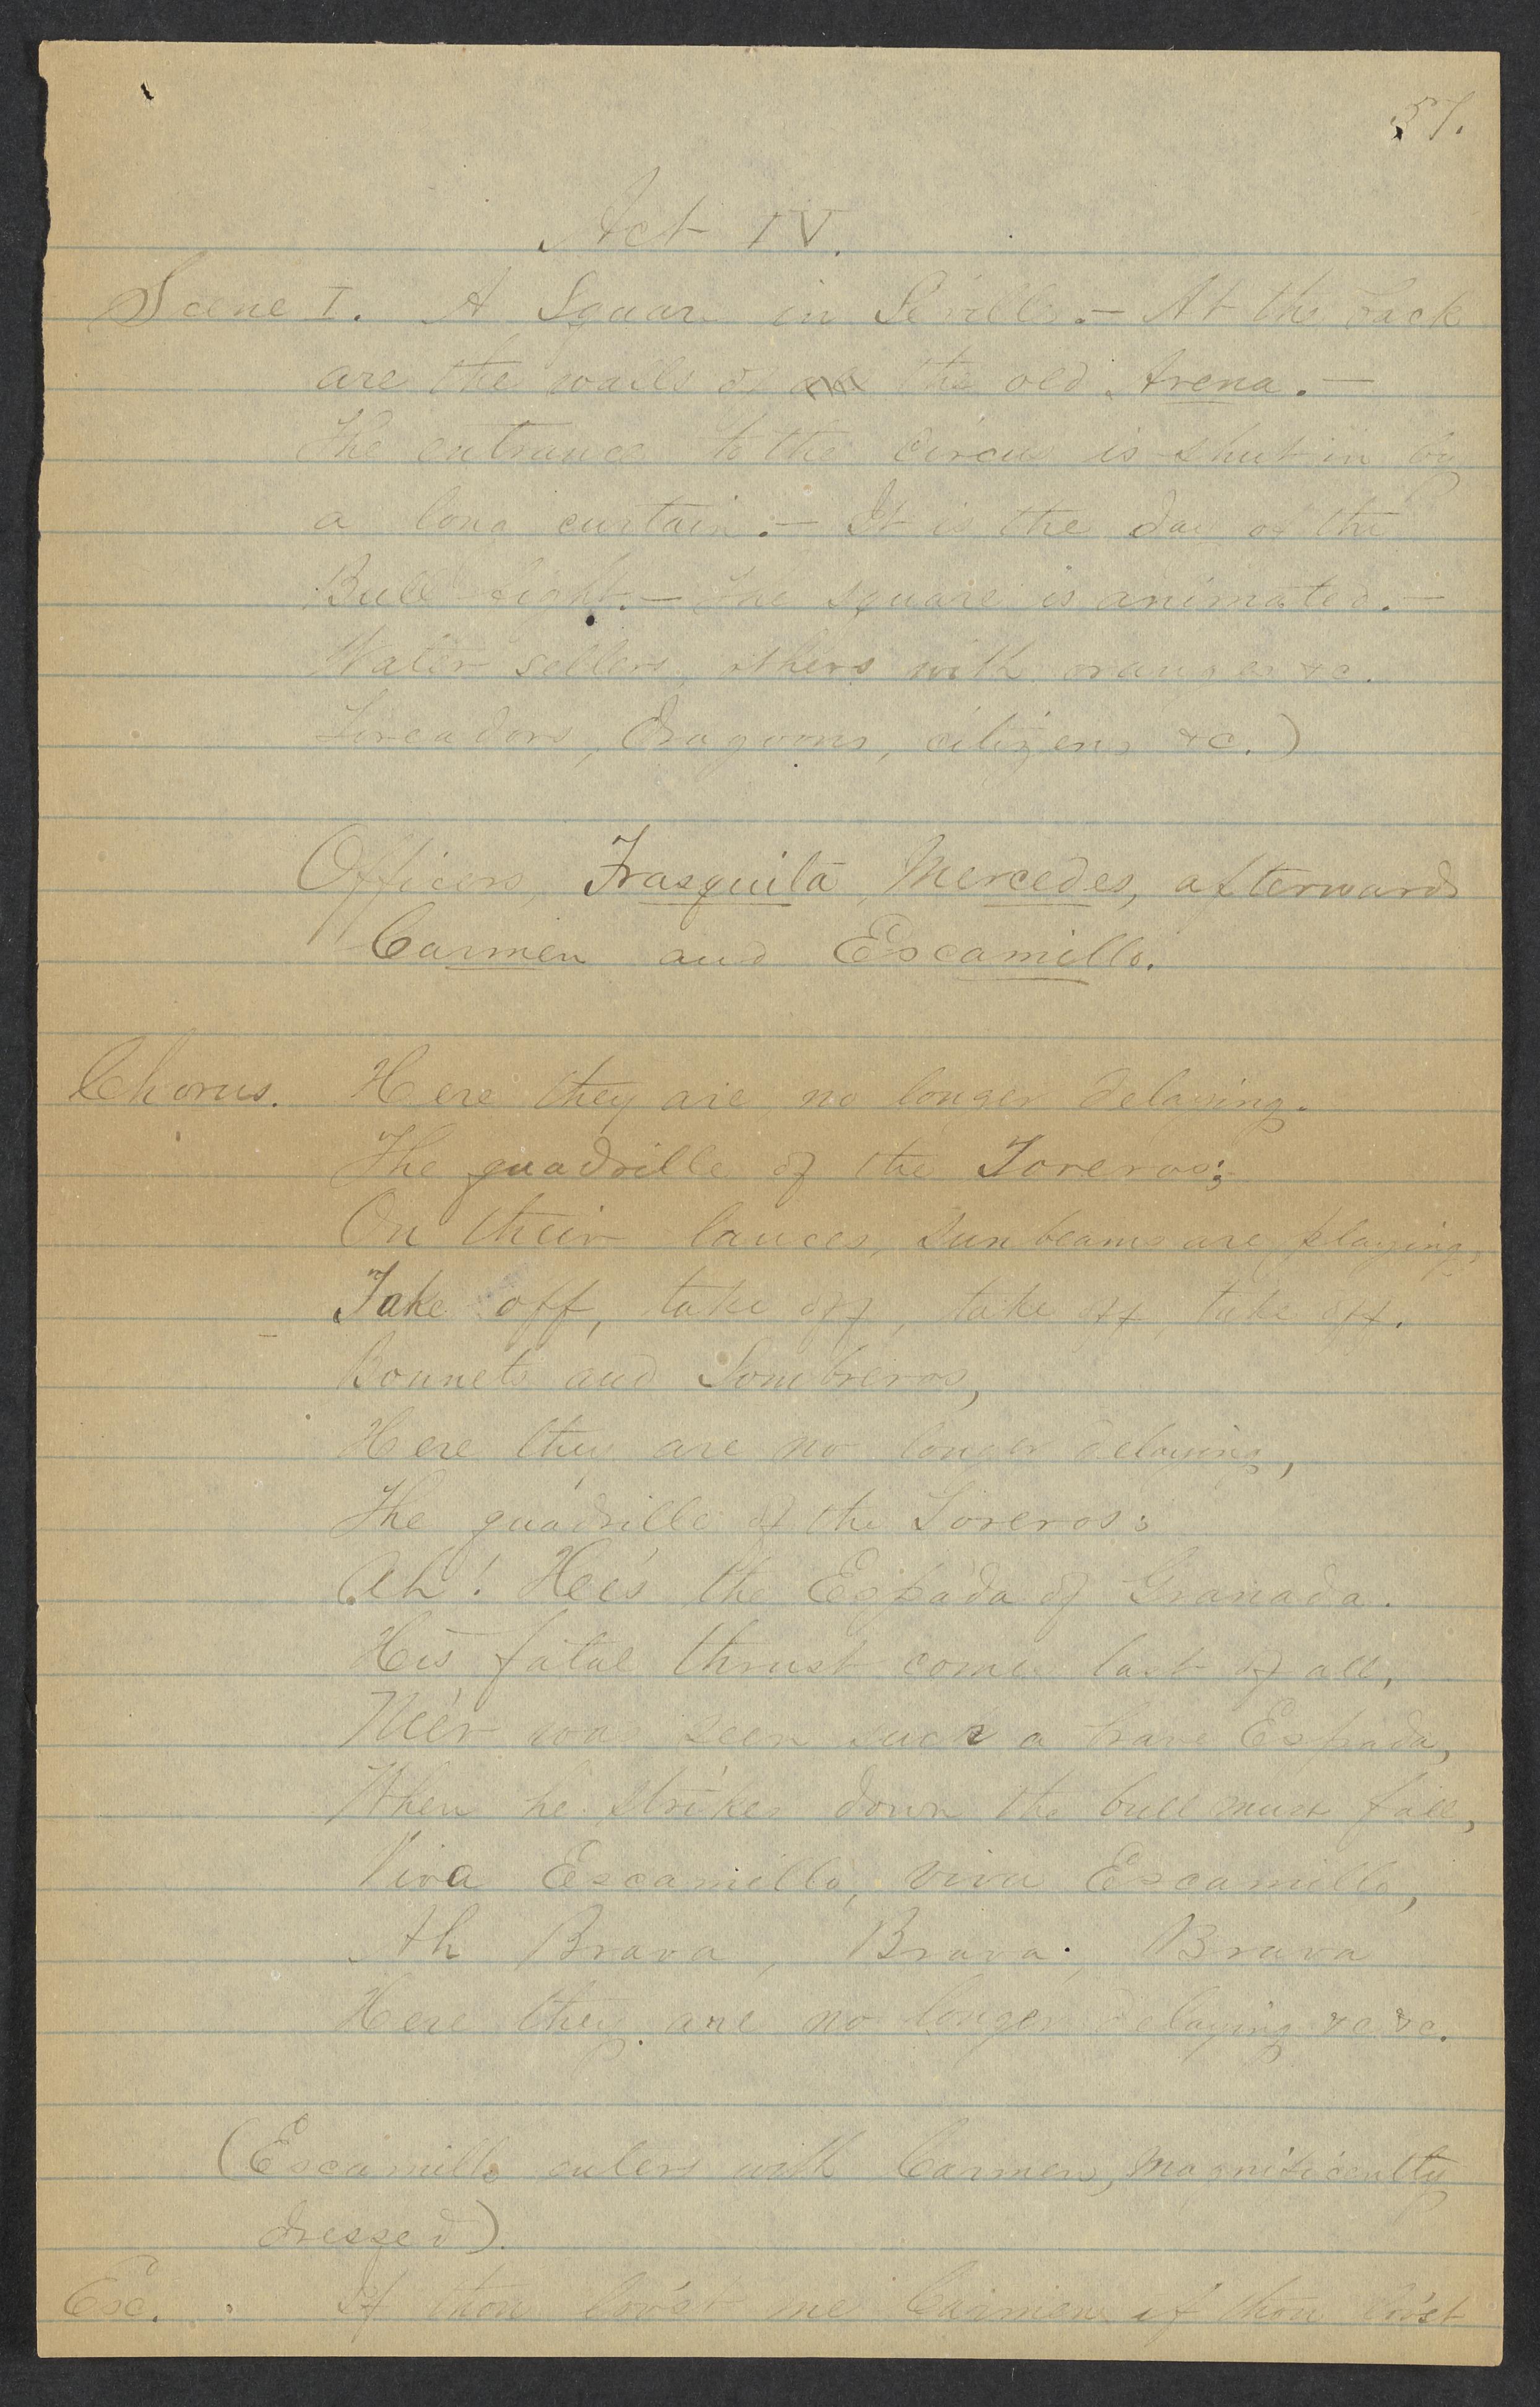 57.
Act IV.
Scene I. A Square in Seville.— At the back
are the walls of the old Arena.—
The entrance to the Circus is shut in by
a long curtain.— It is the day of the
Bull fight.— The square is animated.—
Water sellers, others with oranges &c.
Toreadors, Dragoons, citizens &c.)
Officers, Frasquita, Mercedes, afterwards
Carmen and Escamillo.
Chorus. Here they are, no longer delaying.
The quadrille of the Toreros;
On their lances, sunbeams are playing,
Take off, take off, take off, take off.
Bonnets and Sombreros,
Here they are no longer delaying,
The quadrille of the Toreros;
Ah! He's the Espada of Granada.
His fatal thrust comes last of all,
Ne'er was seen such a brave Espada,
When he strikes down the bull must fall,
Viva Escamillo, viva Escamillo,
Ah Brava, Brava, Brava
Here they are no longer delaying &c &c.
(Escamillo enters with Carmen, magnificently
dressed).
Esc. If thou lov'st me Carmen if thou lov'st